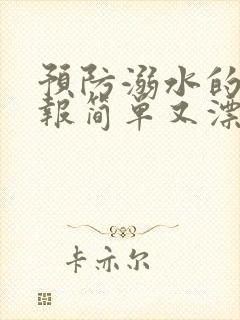 預防溺水的
報简单又漂
卡亦尔